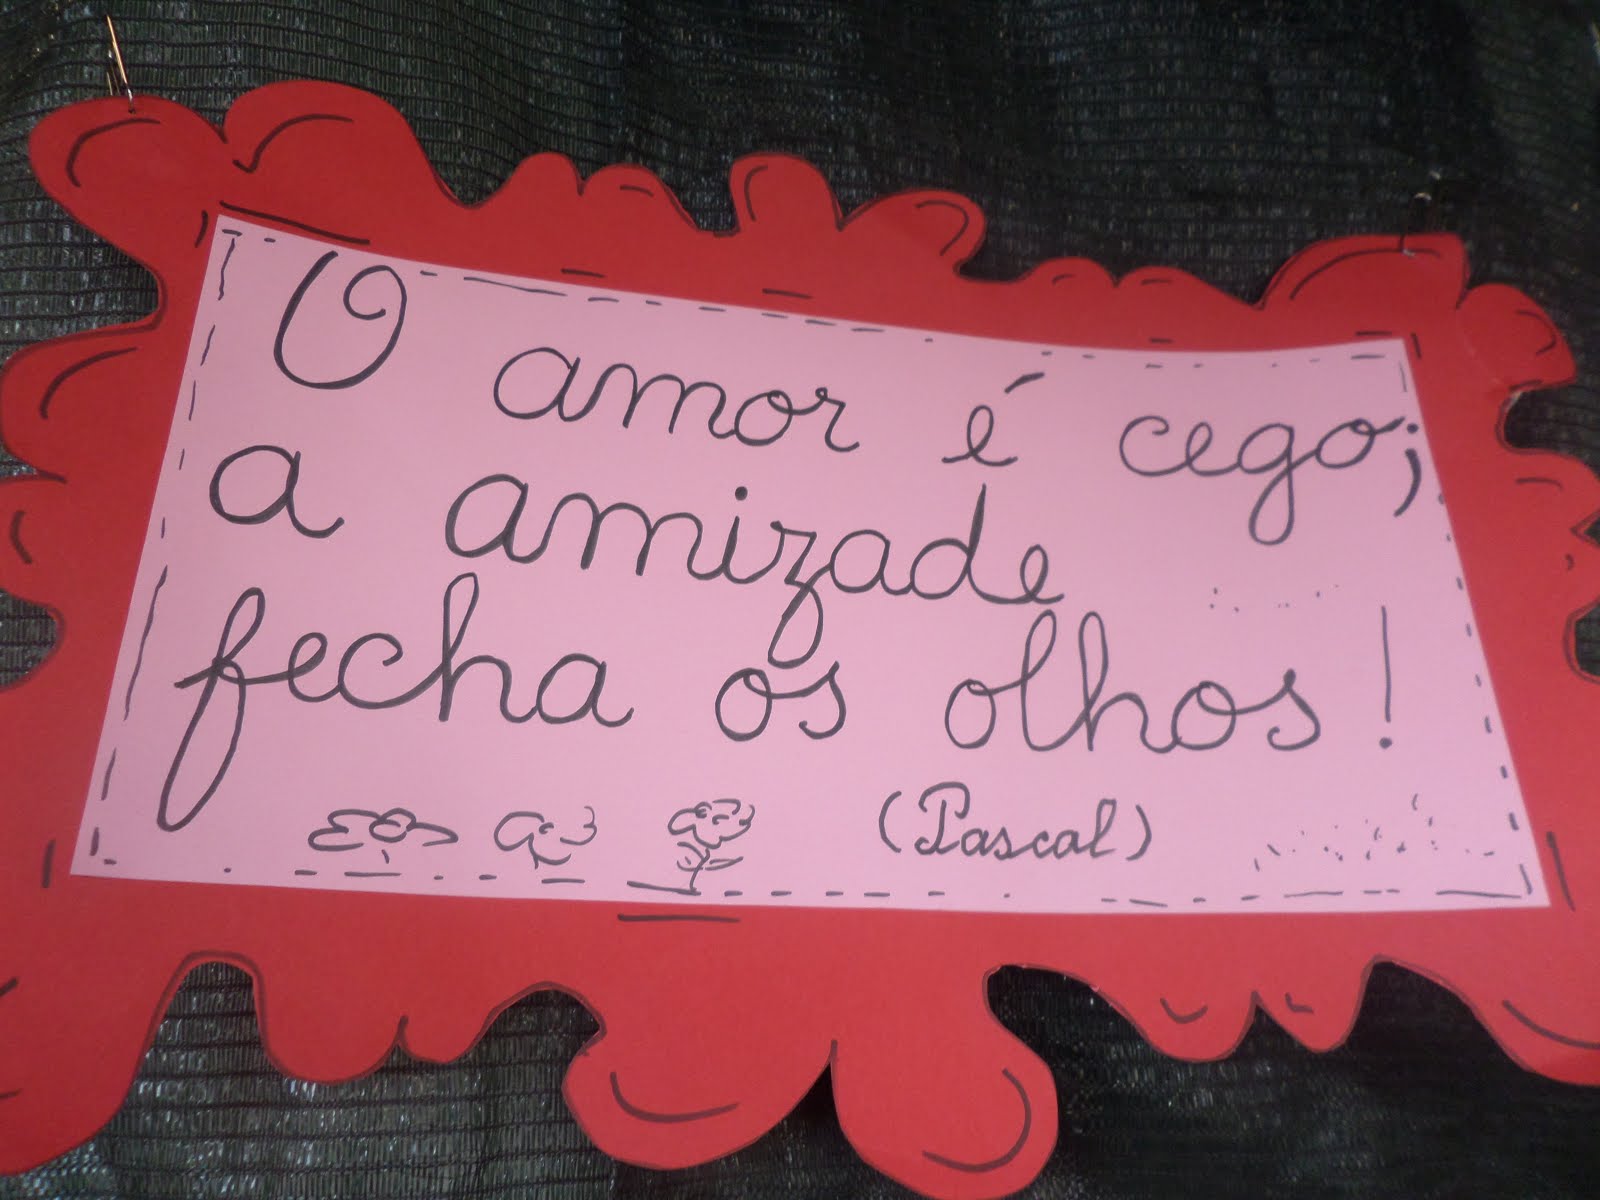 O amor é cego;
a amizade
fecha os olhos!
(Pascal)